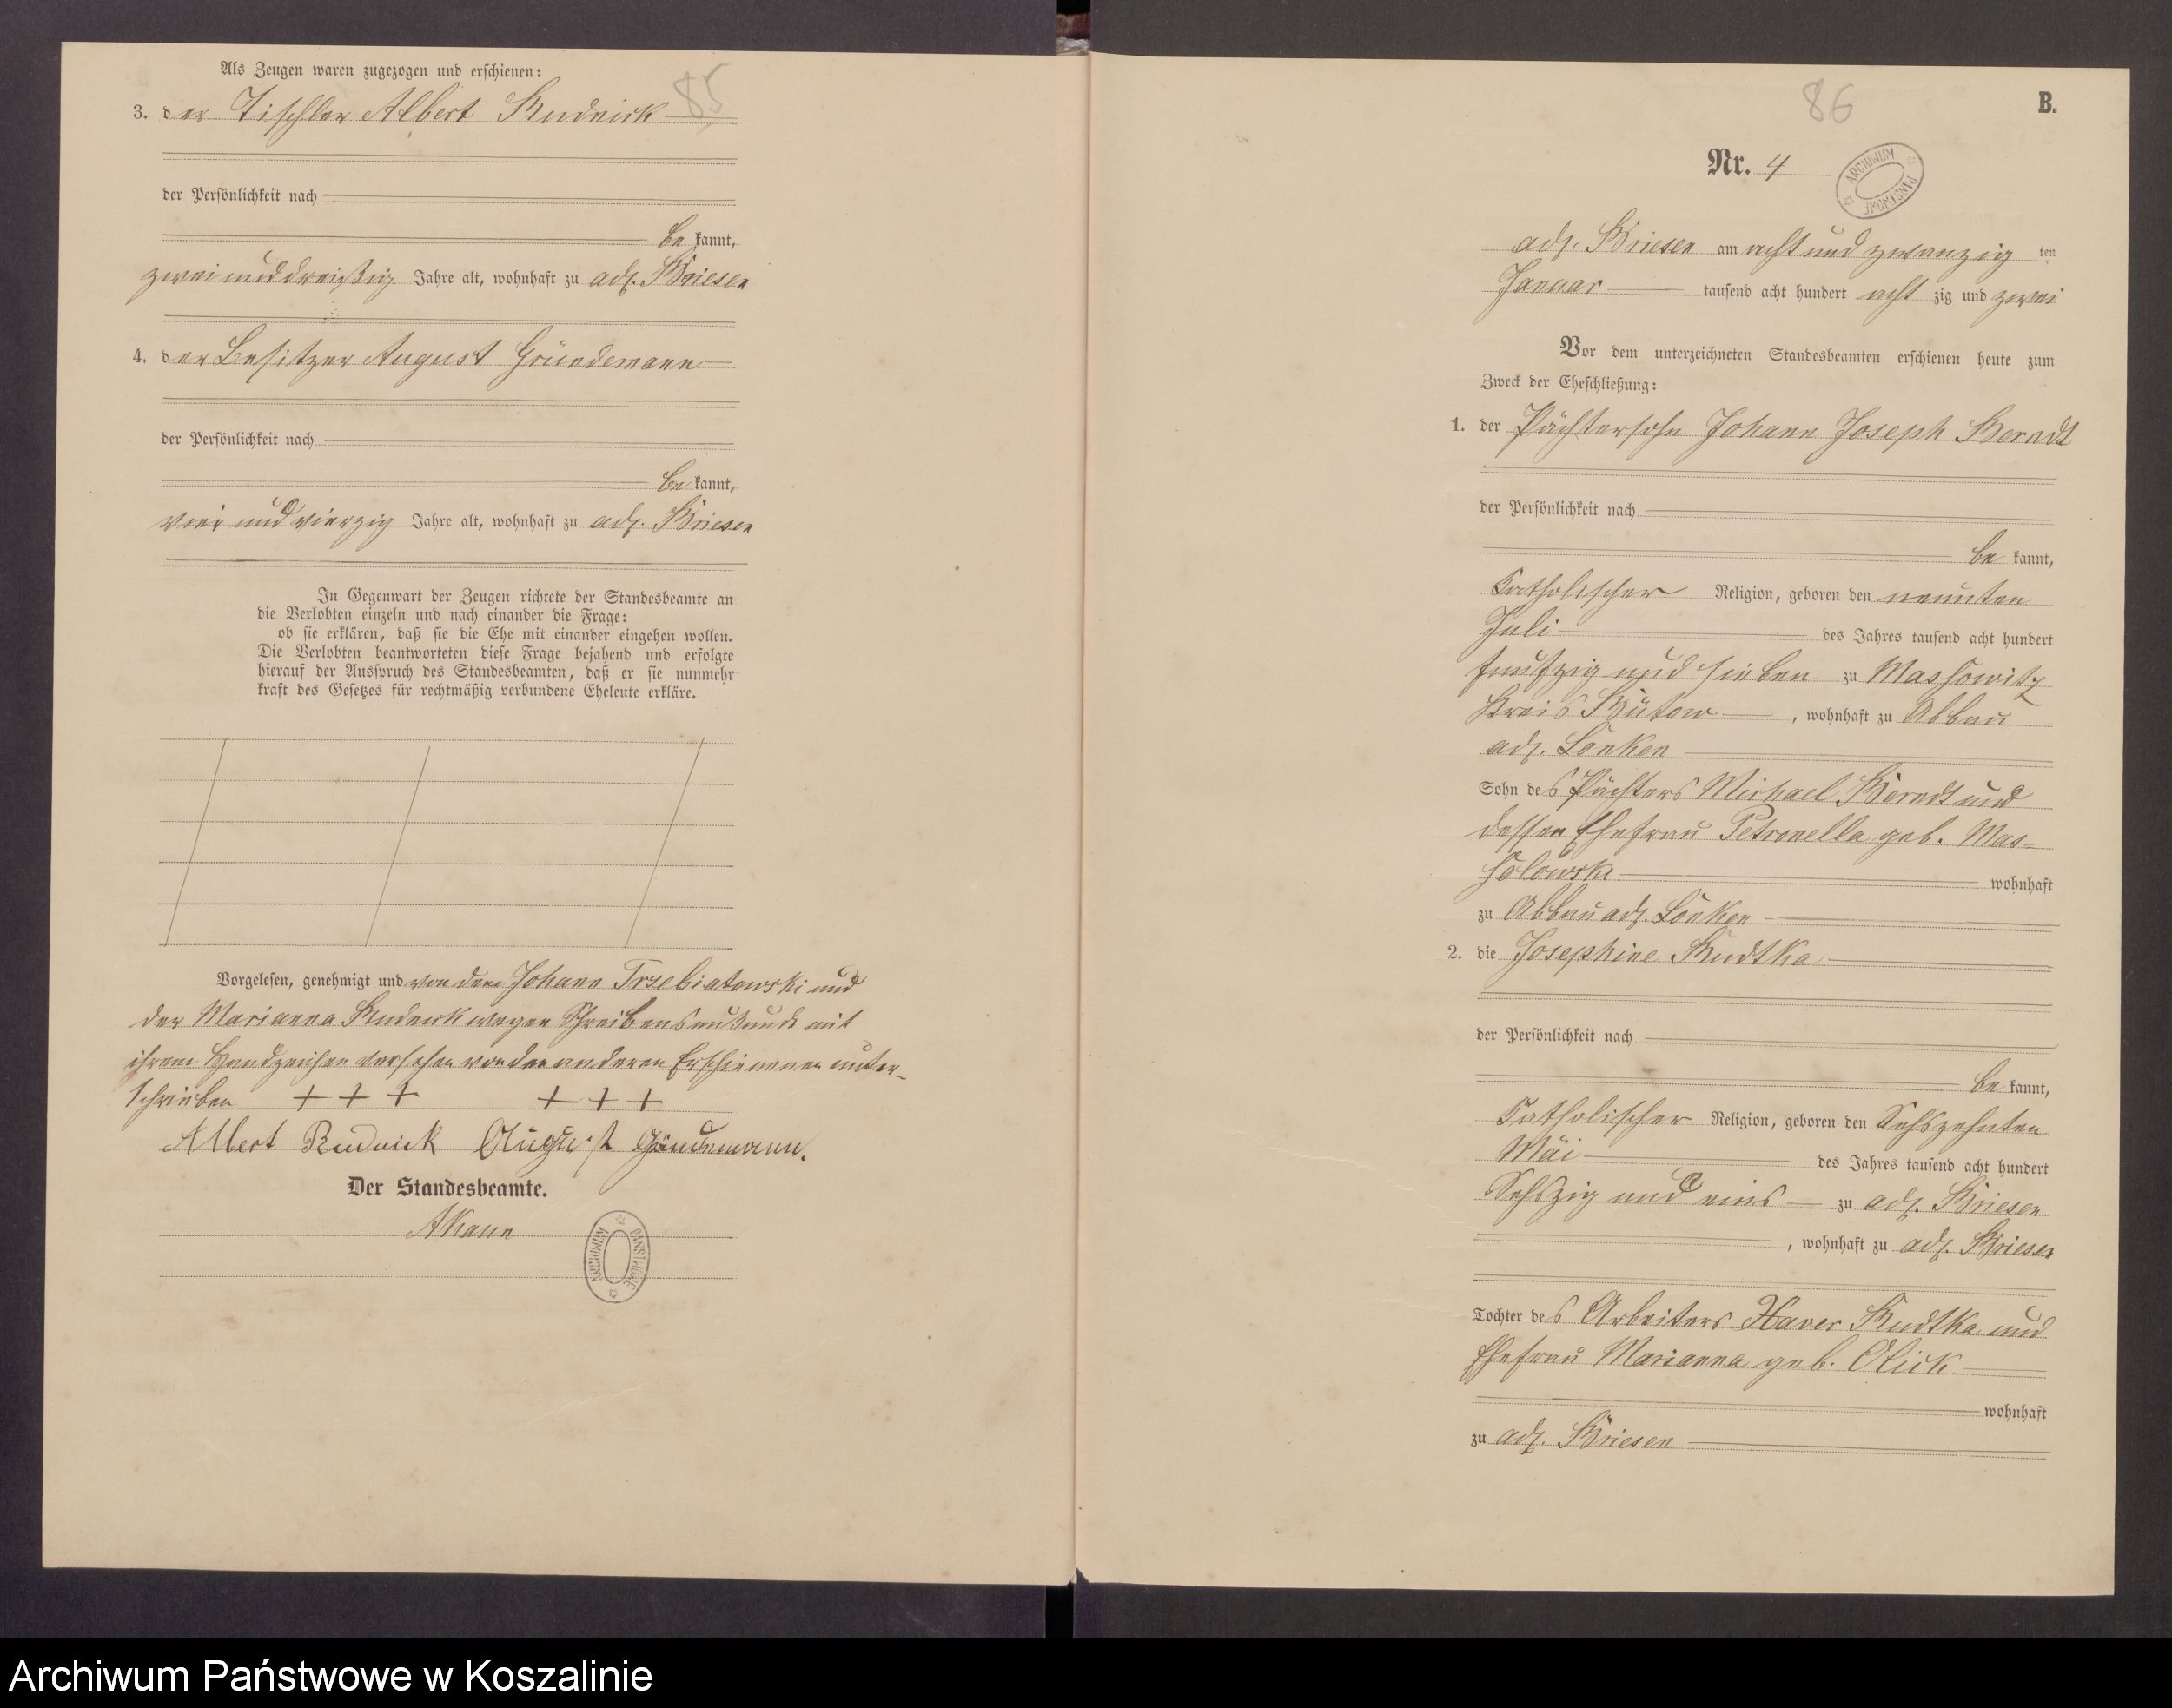 85
Als Zeugen waren zugezogen und erschienen:
3. der Tischler Albert Rudnick
der Persönlichkeit nach
be kannt,
zwei und dreißig Jahre alt, wohnhaft zu adl. Briesen
4. der Besitzer August Gründemann
der Persönlichkeit nach
be kannt,
vier und vierzig Jahre alt, wohnhaft zu adl. Briesen
In Gegenwart der Zeugen richtete der Standesbeamte an
die Verlobten einzeln und nach einander die Frage:
ob sie erklären, daß sie die Ehe mit einander eingehen wollen.
Die Verlobten beantworteten diese Frage bejahend und erfolgte
hierauf der Ausspruch des Standesbeamten, daß er sie nunmehr
kraft des Gesetzes für rechtmäßig verbundene Eheleute erkläre.
Vorgelesen, genehmigt und von dem Johann Trzebiatowski und
der Marianna Rudnick wegen Schreibensunkunde mit
ihrem Handzeichen versehen von den anderen Erschienenen unter-
schrieben + + + + + +
Albert Rudnick August Gründemann.
Der Standesbeamte.
ARCHIWUM PAŃSTWOWE
86
B.
Nr. 4
ARCHIWUM PAŃSTWOWE
adl. Briesen am acht und zwanzig ten
Januar tausend acht hundert acht zig und zwei
Vor dem unterzeichneten Standesbeamten erschienen heute zum
Zweck der Eheschließung:
1. der Pächtersohn Johann Joseph Berndt
der Persönlichkeit nach
be kannt,
katholischer Religion, geboren den neunten
Juli des Jahres tausend acht hundert
funfzig und sieben zu Massowitz
Kreis Bütow, wohnhaft zu Abbau
adl. Lonken
Sohn des Pächters Michael Berndt und
dessen Ehefrau Petronella geb. Mas-
solowska wohnhaft
zu Abbau adl. Lonken
2. die Josephine Rudtka
der Persönlichkeit nach
be kannt,
katholischer Religion, geboren den Sechszehnten
Mai des Jahres tausend acht hundert
Sechszig und eins zu adl. Briesen
, wohnhaft zu adl. Briesen
Tochter des Arbeiters Xaver Rudtka und
Ehefrau Marianna geb. Olick
wohnhaft
zu adl. Briesen
Archiwum Państwowe w Koszalinie